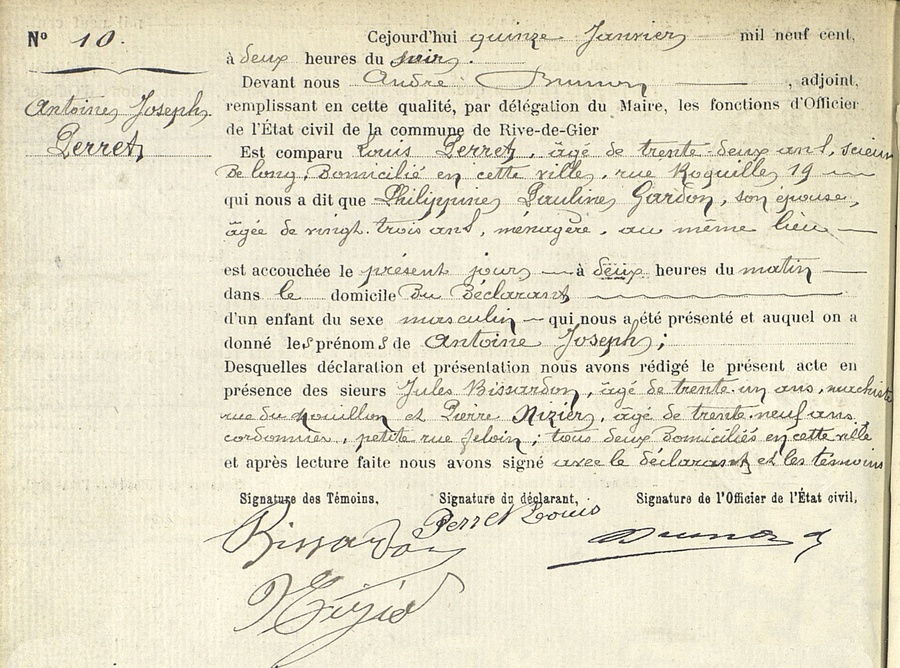 N° 10.
Antoine Joseph
Perret
Cejourd'hui quinze Janvier mil neuf cent,
à deux heures du soir.
Devant nous André Brunon, adjoint,
remplissant en cette qualité, par délégation du Maire, les fonctions d'Officier
de l'État civil de la commune de Rive-de-Gier
Est comparu Louis Perret, âgé de trente-deux ans, scieur
de long, domicilié en cette ville, rue Roquille, 19
qui nous a dit que Philippine Pauline Gardon, son épouse,
âgée de vingt-trois ans, ménagère, au même lieu
est accouchée le présent jour à deux heures du matin
dans le domicile du déclarant
d'un enfant du sexe masculin qui nous a été présenté et auquel on a
donné les prénoms de Antoine Joseph;
Desquelles déclaration et présentation nous avons rédigé le présent acte en
présence des sieurs Jules Bissardon, âgé de trente-un ans,
rue du Mouillon et Pierre Nizier, âgé de trente-neuf ans
cordonnier, petite rue Féloin; tous deux domiciliés en cette ville
et après lecture faite nous avons signé avec le déclarant et les témoins
Signature des Témoins, Signature du déclarant, Signature de l'Officier de l'État civil,
Bissardon Perret Louis Brunon